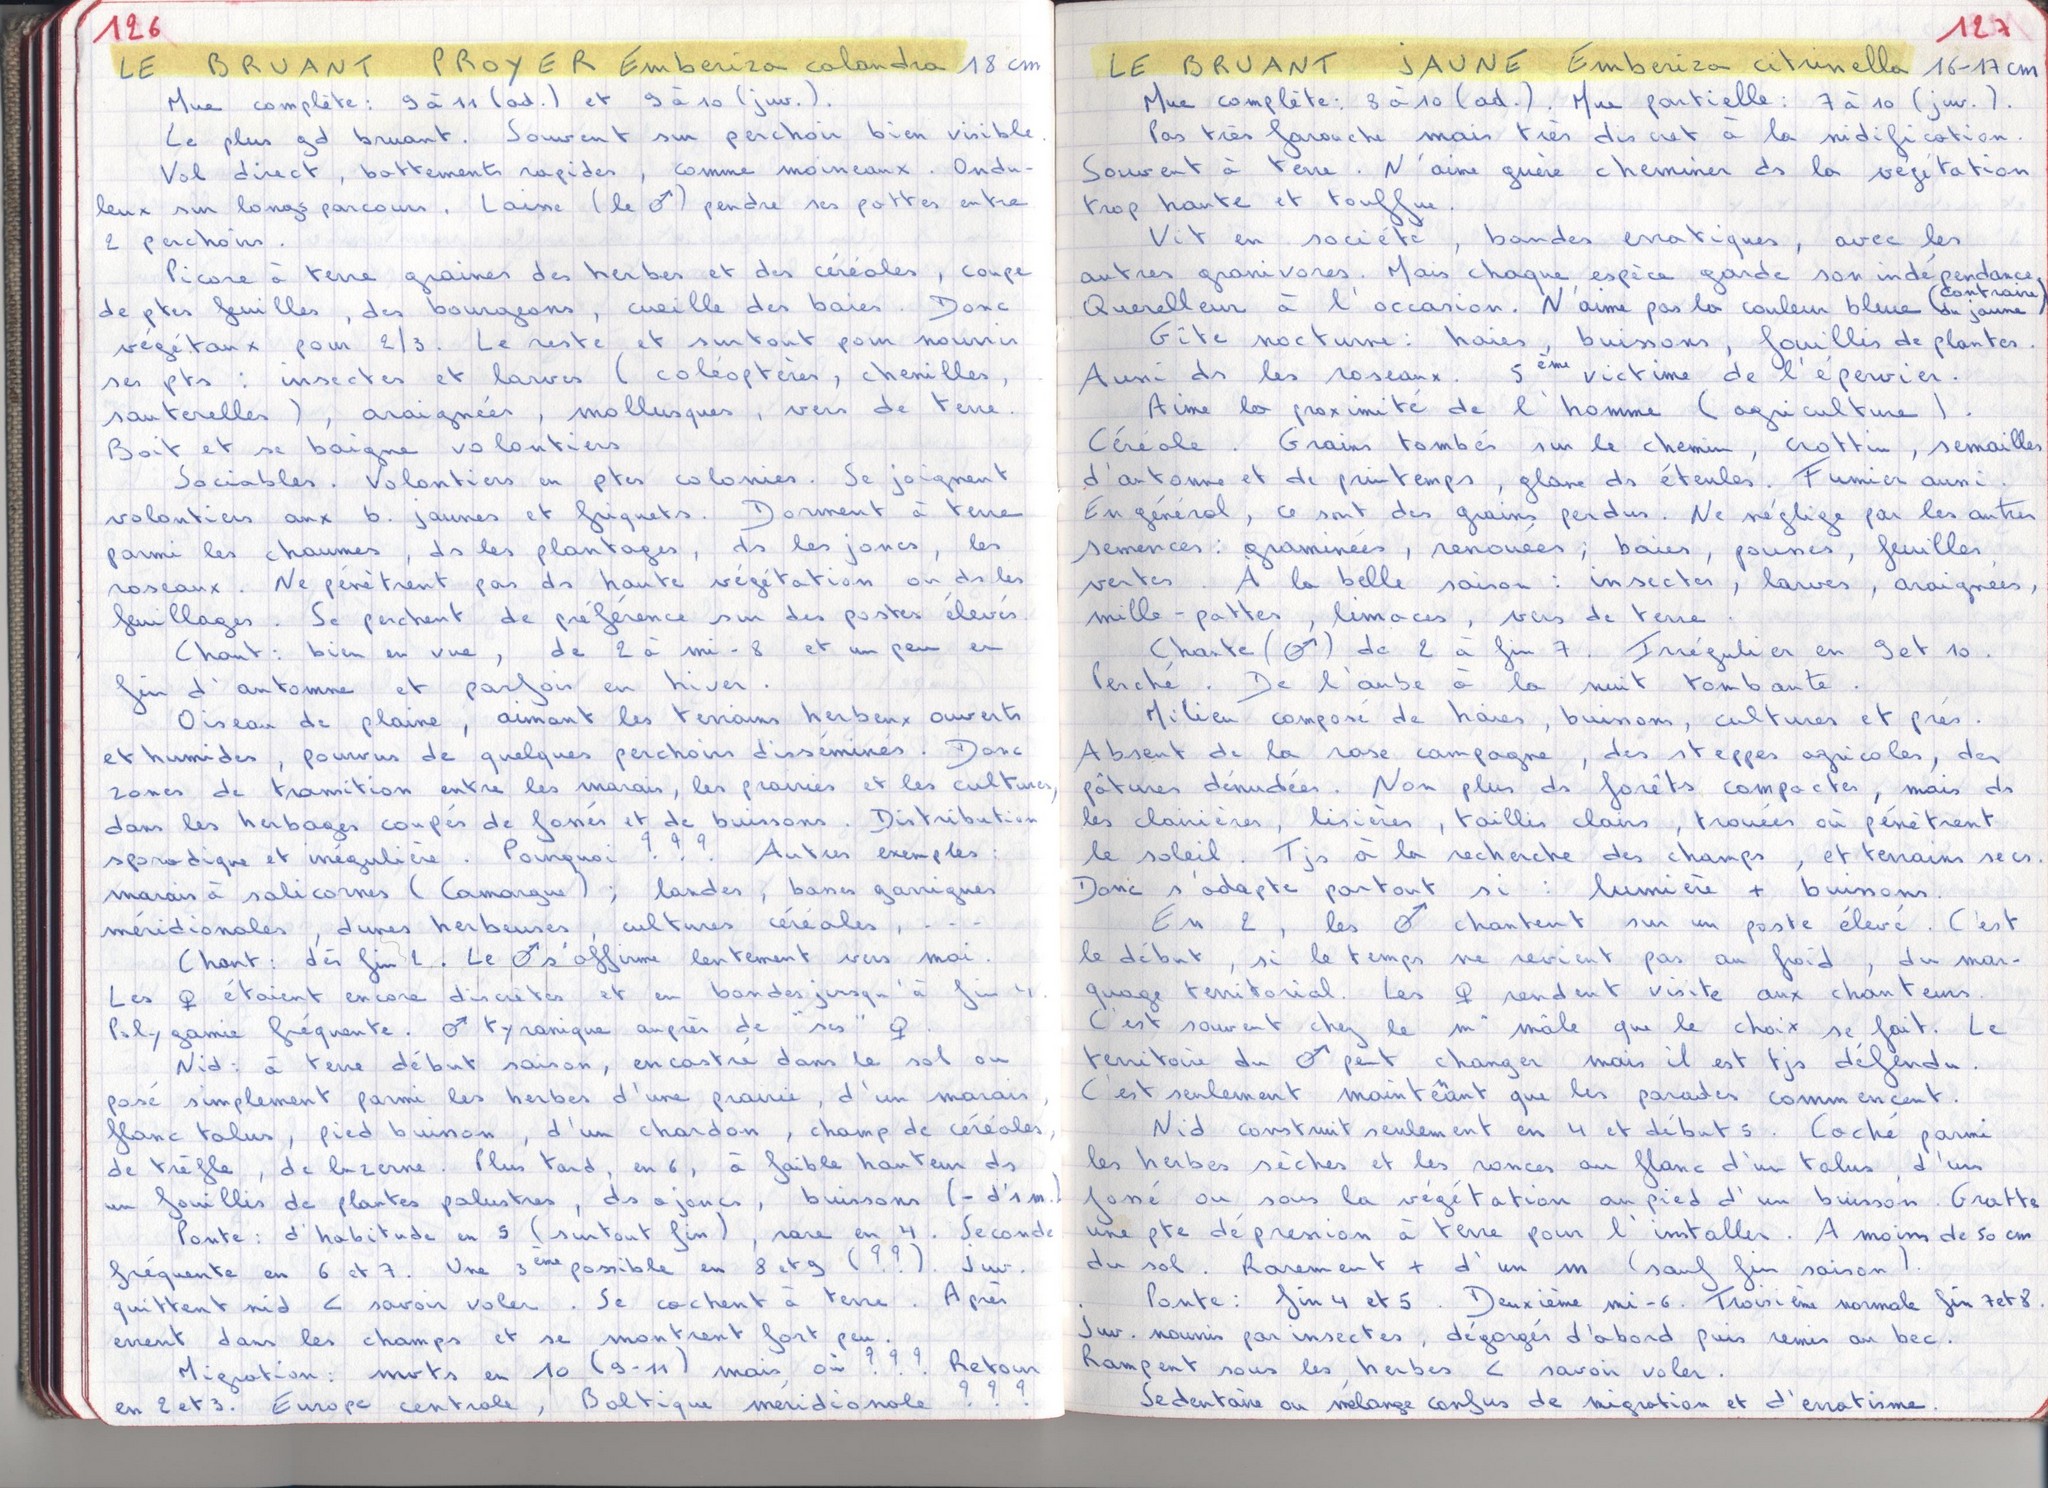 126
LE BRUANT PROYER Emberiza calandra 18 cm
Mue complète : 9 à 11 (ad.) et 9 à 10 (juv.).
Le plus gd bruant. Souvent sur perchoir bien visible.
Vol direct, battements rapides, comme moineaux. Ondu-
leux sur longs parcours. Laisse (le ♂) pendre ses pattes entre
2 perchoirs.
Picore à terre graines des herbes et des céréales, coupe
de ptes feuilles, des bourgeons, cueille des baies. Donc
végétaux pour 2/3. Le reste et surtout pour nourrir
ses pts : insectes et larves (coléoptères, chenilles,
sauterelles), araignées, mollusques, vers de terre.
Boit et se baigne volontiers
Sociables. Volontiers en ptes colonies. Se joignent
volontiers aux b. jaunes et friquets. Dorment à terre
parmi les chaumes, ds les plantages, ds les joncs, les
roseaux. Ne pénètrent pas ds haute végétation ou ds les
feuillages. Se perchent de préférence sur des postes élevés.
Chant : bien en vue, de 2 à mi-8 et un peu en
fin d'automne et parfois en hiver.
Oiseau de plaine, aimant les terrains herbeux ouverts
et humides, pourvus de quelques perchoirs disséminés. Donc
zones de transition entre les marais, les prairies et les cultures,
dans les herbages coupés de fossés et de buissons. Distribution
sporadique et irrégulière. Pourquoi ? ? ? Autres exemples :
marais à salicornes (Camargue) ; landes, basses garrigues
méridionales, dunes herbeuses, cultures céréales, ...
Chant : dès fin 2. Le ♂ s'affirme lentement vers mai.
Les ♀ étaient encore discrètes et en bandes jusqu'à fin 4.
Polygamie fréquente. ♂ tyranique auprès de "ses" ♀.
Nid : à terre début saison, encastré dans le sol ou
posé simplement parmi les herbes d'une prairie, d'un marais,
flanc talus, pied buisson, d'un chardon, champ de céréales,
de trèfle, de luzerne. Plus tard, en 6, à faible hauteur ds
un fouillis de plantes palustres, ds ajoncs, buissons (- d'1 m.)
Ponte : d'habitude en 5 (surtout fin), rare en 4. Seconde
fréquente en 6 et 7. Une 3ème possible en 8 et 9 (??). Juv.
quittent nid < savoir voler. Se cachent à terre. Après
errent dans les champs et se montrent fort peu.
Migration : mvts en 10 (9-11) mais où ? ? ? Retour
en 2 et 3. Europe centrale, Baltique méridionale ? ? ?
127
LE BRUANT JAUNE Emberiza citrinella 16-17 cm
Mue complète : 8 à 10 (ad.). Mue partielle : 7 à 10 (juv.).
Pas très farouche mais très discret à la nidification.
Souvent à terre. N'aime guère cheminer ds la végétation
trop haute et touffue.
Vit en société, bandes erratiques, avec les
autres granivores. Mais chaque espèce garde son indépendance.
Querelleur à l'occasion. N'aime pas la couleur bleue (contraire du jaune)
Gîte nocturne : haies, buissons, fouillis de plantes.
Aussi ds les roseaux. 5ème victime de l'épervier.
Aime la proximité de l'homme (agriculture).
Céréale. Grains tombés sur le chemin, crottin, semailles
d'automne et de printemps, glane ds éteules. Fumier aussi.
En général, ce sont des grains perdus. Ne néglige pas les autres
semences : graminées, renouées ; baies, pousses, feuilles
vertes. A la belle saison : insectes, larves, araignées,
mille-pattes, limaces, vers de terre.
Chante (♂) de 2 à fin 7. Irrégulier en 9 et 10.
Perché. De l'aube à la nuit tombante.
Milieu composé de haies, buissons, cultures et prés.
Absent de la rase campagne, des steppes agricoles, des
pâtures dénudées. Non plus ds forêts compactes, mais ds
les clairières, lisières, taillis clairs, trouées où pénètrent
le soleil. Tjs à la recherche des champs, et terrains secs.
Donc s'adapte partout si : lumière + buissons.
En 2, les ♂ chantent sur un poste élevé. C'est
le début, si le temps ne revient pas au froid, du mar-
quage territorial. Les ♀ rendent visite aux chanteurs.
C'est souvent chez le m^ mâle que le choix se fait. Le
territoire du ♂ peut changer mais il est tjs défendu.
C'est seulement maintenant que les parades commencent.
Nid construit seulement en 4 et début 5. Caché parmi
les herbes sèches et les ronces au flanc d'un talus, d'un
fossé ou sous la végétation au pied d'un buisson. Gratte
une pte dépression à terre pour l'installer. A moins de 50 cm
du sol. Rarement + d'un m (sauf fin saison).
Ponte : fin 4 et 5. Deuxième mi-6. Troisième normale fin 7 et 8.
Juv. nourris par insectes, dégorgés d'abord puis remis au bec.
Rampent sous les herbes < savoir voler.
Sédentaire ou mélange confus de migration et d'erratisme.